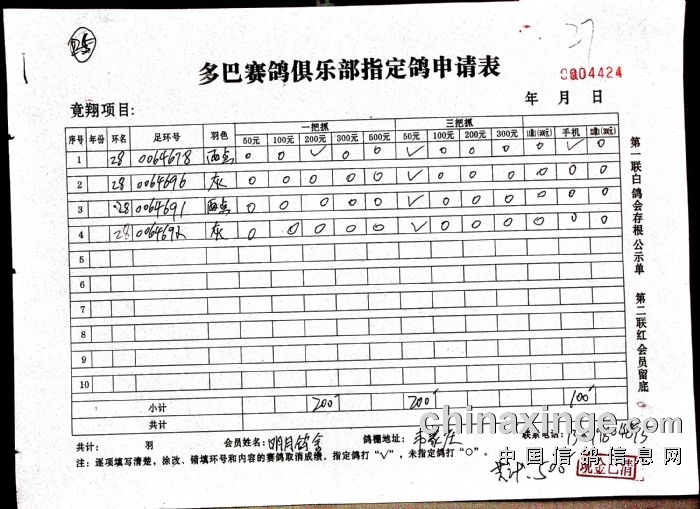 27
多巴赛鸽俱乐部指定鸽申请表
0004424
竟翔项目:
年 月 日
序号 年份 环名 足环号 羽色 一把抓 三把抓
50元 100元 200元 300元 500元 50元 100元 200元 300元 手机
1 28 0064678 雨点 0 0 ✓ 0 0 ✓ 0 0 0 0 ✓ 0
2 28 0064696 灰 0 0 0 0 0 ✓ 0 0 0 0 0 0
3 28 0064691 雨点 0 0 0 0 0 ✓ 0 0 0 0 0 0
4 28 006469 灰 0 0 0 0 0 ✓ 0 0 0 0 0 0
5
6
7
8
9
10
小计 200 200 100
共计
共计: 羽 会员姓名: 明月鸽舍 鸽棚地址: 联系电话:
注：逐项填写清楚，涂改、错填环号和内容的赛鸽取消成绩，指定鸽打“√”，未指定鸽打“○”。
共计:500
现金已清
第一联白鸽会存根公示单 第二联红会员留底
chinaxinge.com
中国信鸽信息网